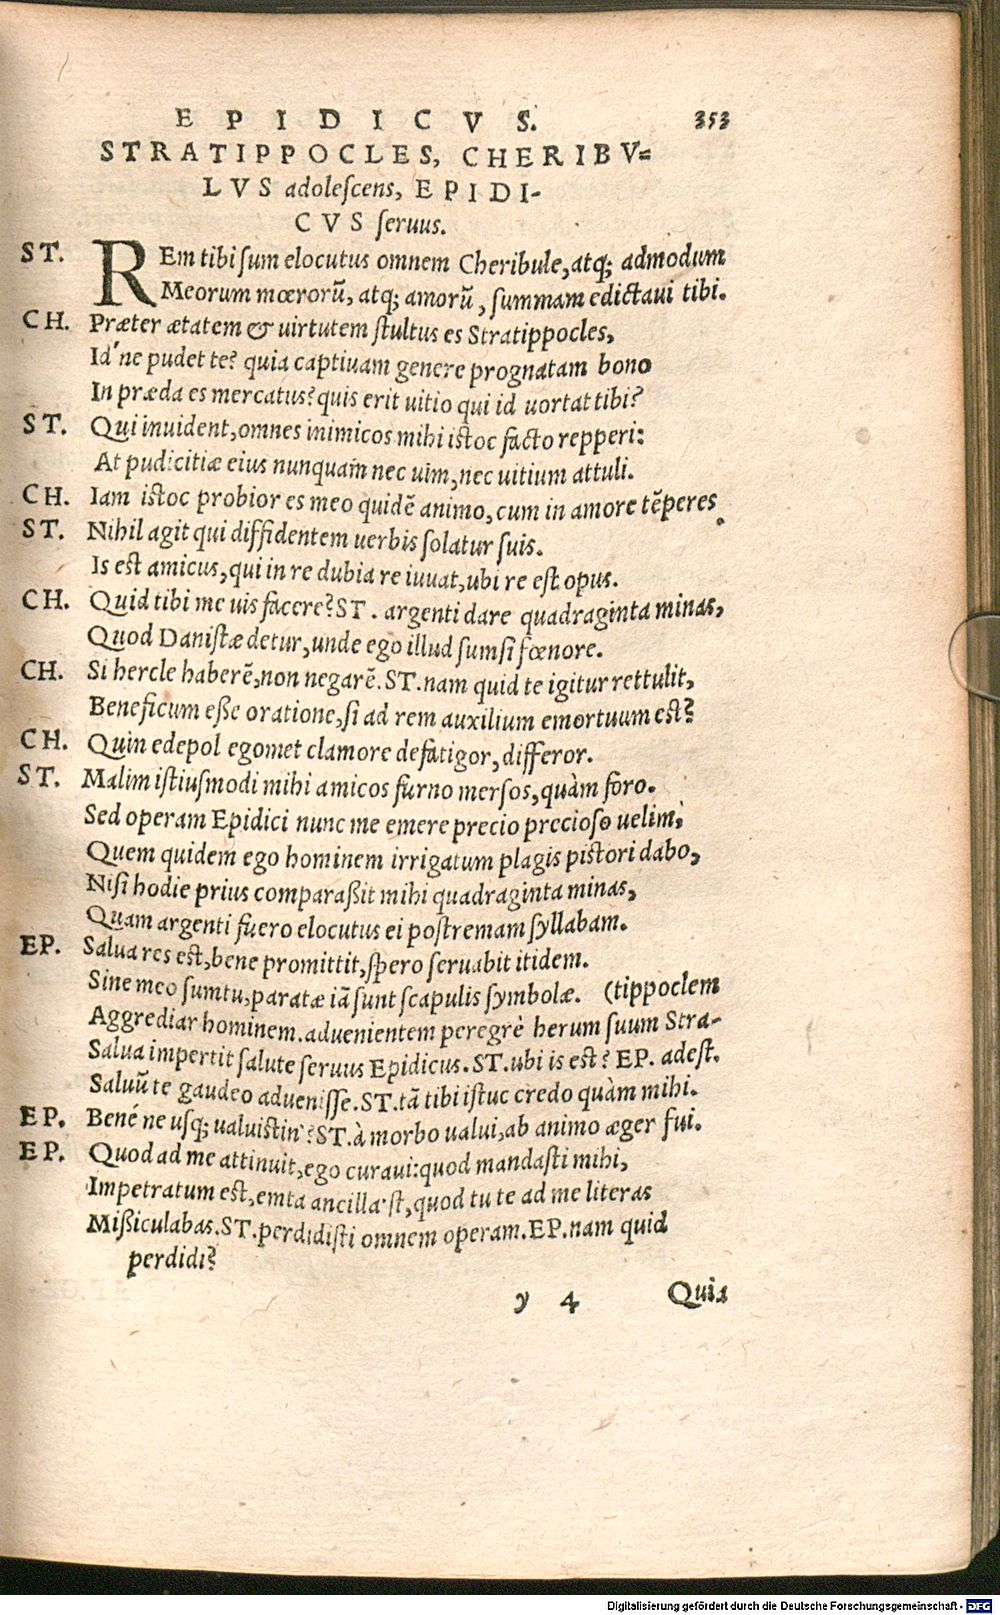 EPIDICVS. 353
STRATIPPOCLES, CHERIBV=
LVS adoleſcens, EPIDI-
CVS ſeruus.
ST. REm tibi ſum elocutus omnem Cheribule, atq; admodum
Meorum mœrorũ, atq; amorũ, ſummam edictaui tibi.
CH. Præter ætatem & uirtutem ſtultus es Stratippocles,
Id'ne pudet te? quia captiuam genere prognatam bono
In præda es mercatus? quis erit uitio qui id uortat tibi?
ST. Qui inuident, omnes inimicos mihi iſtoc facto repperi:
At pudicitiæ eius nunquam nec uim, nec uitium attuli.
CH. Iam iſtoc probior es meo quidẽ animo, cum in amore tẽperes.
ST. Nihil agit qui diffidentem uerbis ſolatur ſuis.
Is eſt amicus, qui in re dubia re iuuat, ubi re eſt opus.
CH. Quid tibi me uis facere? ST. argenti dare quadraginta minas,
Quod Daniſtæ detur, unde ego illud ſumſi fœnore.
CH. Si hercle haberẽ, non negarẽ. ST. nam quid te igitur rettulit,
Beneficum eße oratione, ſi ad rem auxilium emortuum eſt?
CH. Quin edepol egomet clamore defatigor, differor.
ST. Malim iſtiuſmodi mihi amicos furno merſos, quàm foro.
Sed operam Epidici nunc me emere precio precioſo uelim,
Quem quidem ego hominem irrigatum plagis piſtori dabo,
Niſi hodie prius comparaßit mihi quadraginta minas,
Quam argenti fuero elocutus ei poſtremam ſyllabam.
EP. Salua res eſt, bene promittit, ſpero ſeruabit itidem.
Sine meo ſumtu, paratæ iã ſunt ſcapulis ſymbolæ. (tippoclem
Aggrediar hominem. aduenientem peregrè herum ſuum Stra-
Salua impertit ſalute ſeruus Epidicus. ST. ubi is eſt? EP. adeſt.
Saluũ te gaudeo adueniſſe. ST. tã tibi iſtuc credo quàm mihi.
EP. Bené ne uſq; ualuiſtin'? ST. à morbo ualui, ab animo æger fui.
EP. Quod ad me attinuit, ego curaui: quod mandaſti mihi,
Impetratum eſt, emta ancilla'ſt, quod tu te ad me literas
Mißiculabas. ST. perdidiſti omnem operam. EP. nam quid
perdidi?
y 4 Quia
Digitalisierung gefördert durch die Deutsche Forschungsgemeinschaft - DFG